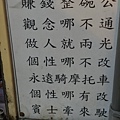 賺錢整碗公
觀念哪不通
做人就兩光
個性哪不改
永遠騎摩托車
個性哪有改
賓士牽來駛